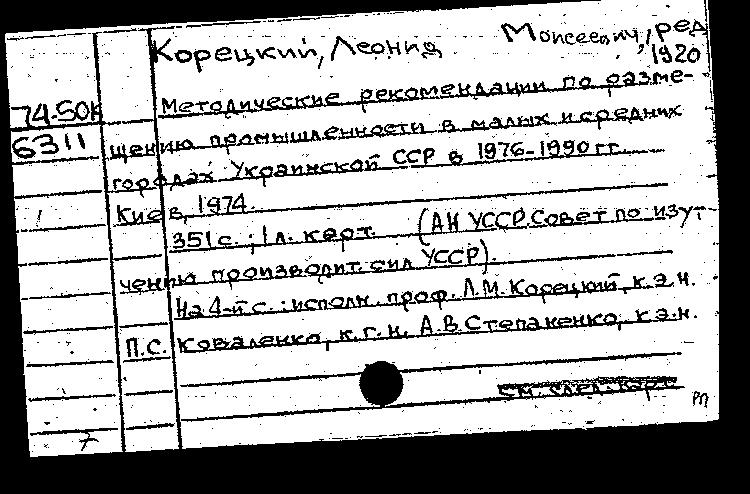 Корецкий, Леонид Моисеевич, ред
1920
74-50к
6311
Методические рекомендации по разме-
щению промышленности в малых и средних
городах Украинской ССР в 1976-1990 гг.
Киев, 1974.
351 с.; 1 л. карт. (АН УССР. Совет по изу-
чению производит. сил УССР).
На 4-й с.: исполн. проф. Л.М. Корецкий, к.э.н.
П.С. Коваленко, к.г.н. А.В. Степаненко, к.э.н.
см. след. карт
РП
7